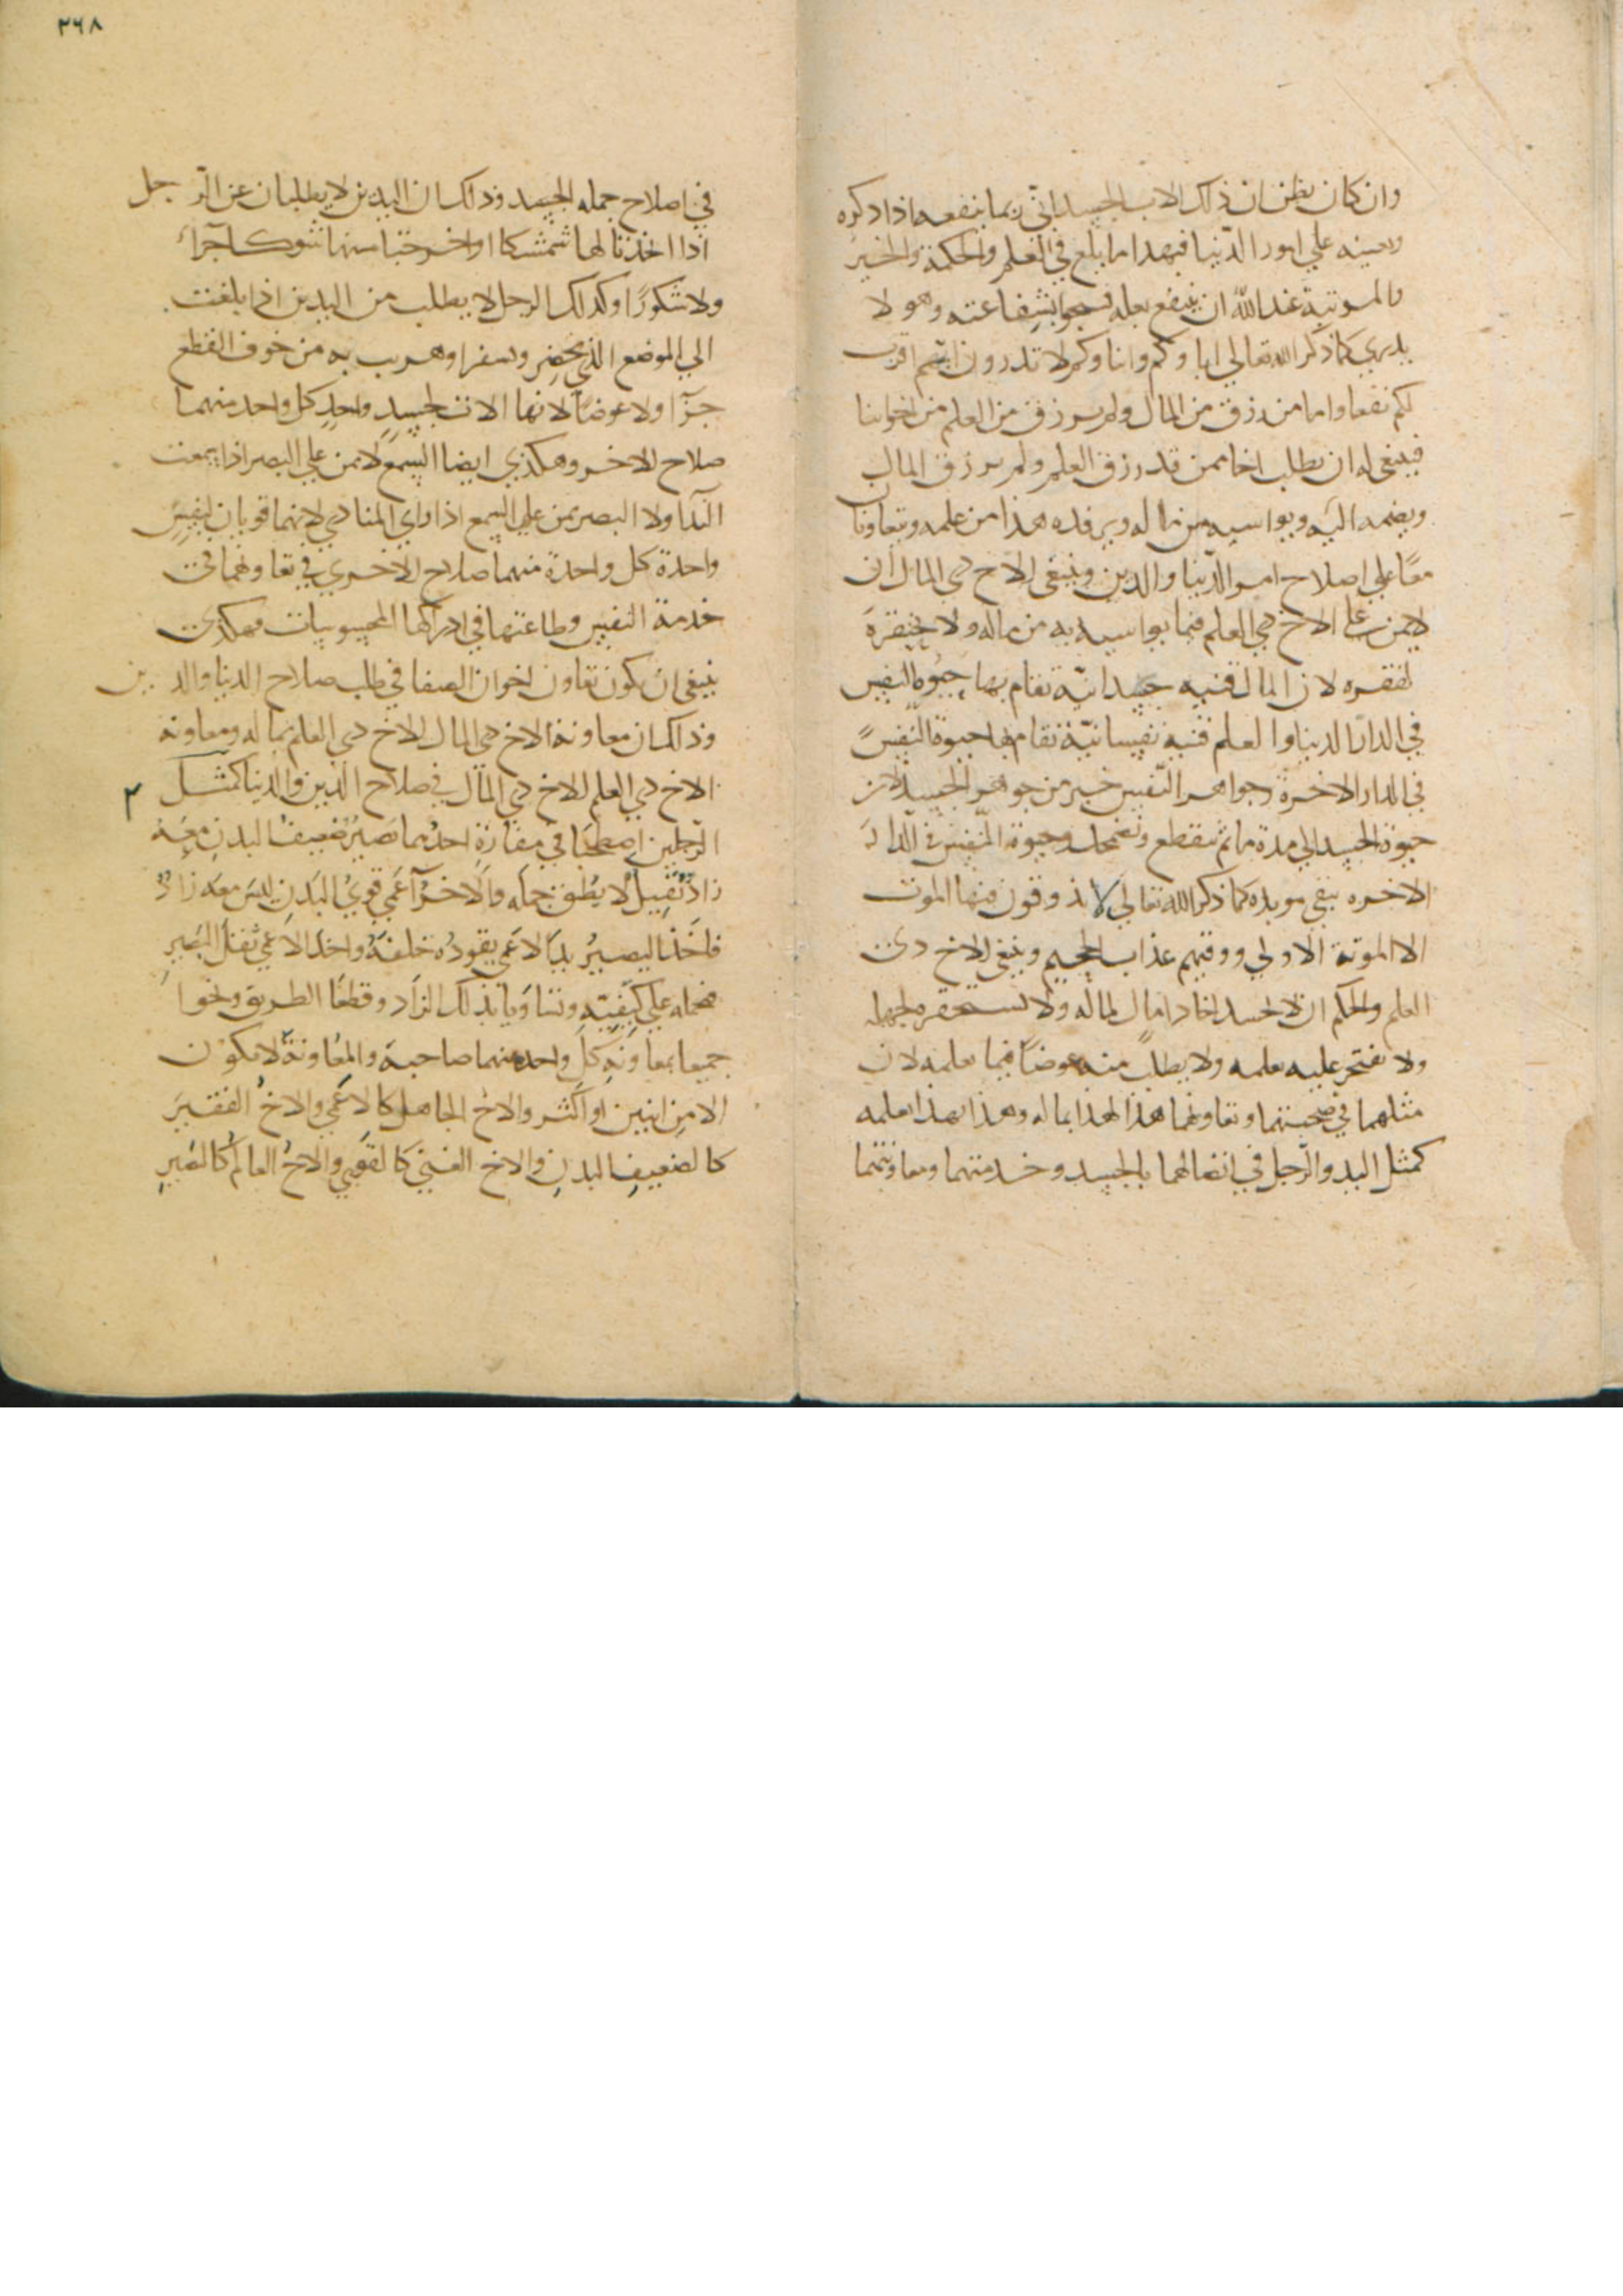 وان كان يظن ان ذلك الاب الجسداني ربما ينفعه اذا ذكره
ويعينه علي امور الدنيا فبهدا ما بلغ في العلم والحكمة والخير
والمرتبة عند الله ان ينفع بعله وينجوا بشفاعته وهو لا
يدري كما ذكر الله تعالي اباوكم وابناوكم لا تدرون ايهم اقرب
لكم نفعا واما من رزق من المال ولم يرزق من العلم من اخواننا
فينبغي له ان يطلب اخا ممن قد رزق العلم ولم يرزق المال
ويضمه اليه ويواسيه من ماله ويرفده هذا من علمه ويتعاونا
معا علي اصلاح امر الدنيا والدين وينبغي للاخ دي المال ان
لا يمن علي الاخ دي العلم فيما يواسيه به من ماله ولا يحتقره
لفقره لان المال قنيه جسدانيه تقام بها حيوة النفس
في الدار الدنيا والعلم قنيه نفسانية تقام بها حيوة النفس
في الدار الاخرة وجواهر النفس خير من جواهر الجسد لان
حيوة الجسد الي مدة ما ثم ينقطع وتضمحل وحيوة النفس في الدار
الاخره يبقي موبده كما ذكر الله تعالي لا يذوقون فيها الموت
الا الموتة الاولي ووقيهم عذاب الجحيم وينبغي للاخ دي
العلم والحكم ان لا يحسد اخا دا مال لماله ولا يستحقره لجهله
ولا يفتخر عليه بعلمه ولا يطلب منه عوضا فيما يعلمه لان
مثلهما في صحبتهما وتعاونهما هذا لهذا بماله وهذا لهذا بعلمه
كمثل اليد والرجل في اتصالهما بالجسد وخدمتهما ومعاونتهما
٣٦٨
في اصلاح جمله الجسد وذلك ان اليدين لا يطلبان عن الرجل
اذا اخذتا لها شمشكا او اخرجتا منها شوكا جزآء
ولا شكورا وكدلك الرجل لا يطلب من اليدين اذا بلغت
الي الموضع الذي يحضر وسفرا وهرب به من خوف القطع
جزآ ولا عوضا لانها الات لجسد واحد كل واحد منهما
صلاح للاخر وهكذي ايضا السمع لا يمن علي البصر اذا سمعت
الندا ولا البصر يمن علي السمع اذا راي المنادي لانهما قويان لنفس
واحدة كل واحدة منهما صلاح الاخري في تعاونهما في
خدمة النفس وطاعتها في ادراكها المحسوسات فهكدي
ينبغي ان يكون تعاون اخوان الصفا في طلب صلاح الدنيا والدين
وذلك ان معاونة الاخ دي المال للاخ دي العلم بماله ومعاونة
الاخ دي العلم للاخ دي المال في صلاح الدين والدنيا كمثل
الرجلين اصطحبا في مفازة احدهما بصير ضعيف البدن معه
زاد ثقيل لا يطق حمله والاخر آعمي قوي البدن ليس معه زاد
فاخذ البصير بيد الاعمي يقوده خلفه واخد الاعمي ثقل البصير
فحمله علي كتفيه وتناويا بذلك الزاد وقطعا الطريق ونجوا
جميعا بمعاونة كل واحد منهما صاحبة والمعاونة لا يكون
الا من اثنين او اكثر والاخ الجاهل كالاعمي والاخ الفقير
كالضعيف البدن والاخ الغني كالقوي والاخ العالم كالبصير